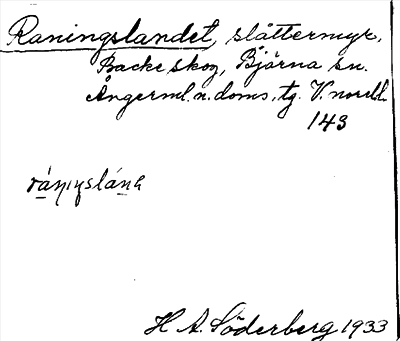 Raningslandet, slåttermyr,
Backe skog, Björna sn.
Ångerml. n. doms. tg. V. nordd.
143
ráṉiŋsláṉa
H. A. Söderberg 1933